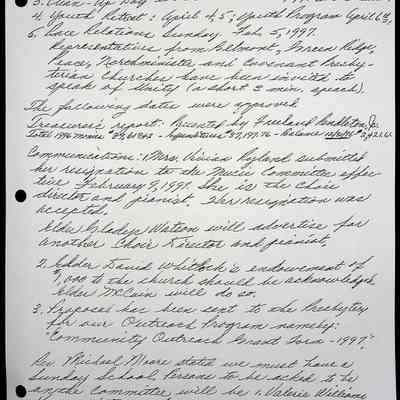 3. Clean-Up Day
4. Youth Retreat: April 4, 5; Youth Program April 6,
5. Race Relations Sunday Feb. 5, 1997.
Representatives from Belmont, Green Ridge,
Peace, Northminister and Covenant Presby-
terian Churches have been invited to
speak of Unity (a short 3 min. speech).
The following dates were approved
Treasurer's report: Presented by Freeland Pendleton, Jr.
Total 1996 - Expenditures - Balance
Communications: Mrs. Vivian Ryland submitted
her resignation to the Music Committee effec-
tive February 9, 1997. She is the Choir
director and pianist. Her resignation was
accepted.
Elder Gladys Watson will advertise for
another Choir Director and pianist.
2. Elder David Whitlock's endowment of
1,000 to the church should be acknowledged.
Elder McCain will do so.
3. Proposal has been sent to the Presbytery
for our Outreach Program namely:
"Community Outreach Grant Form - 1997."
Rev. Michael Moore stated we must have a
Sunday School. Persons to be asked to be
on the Committee will be: 1. Valerie Williams